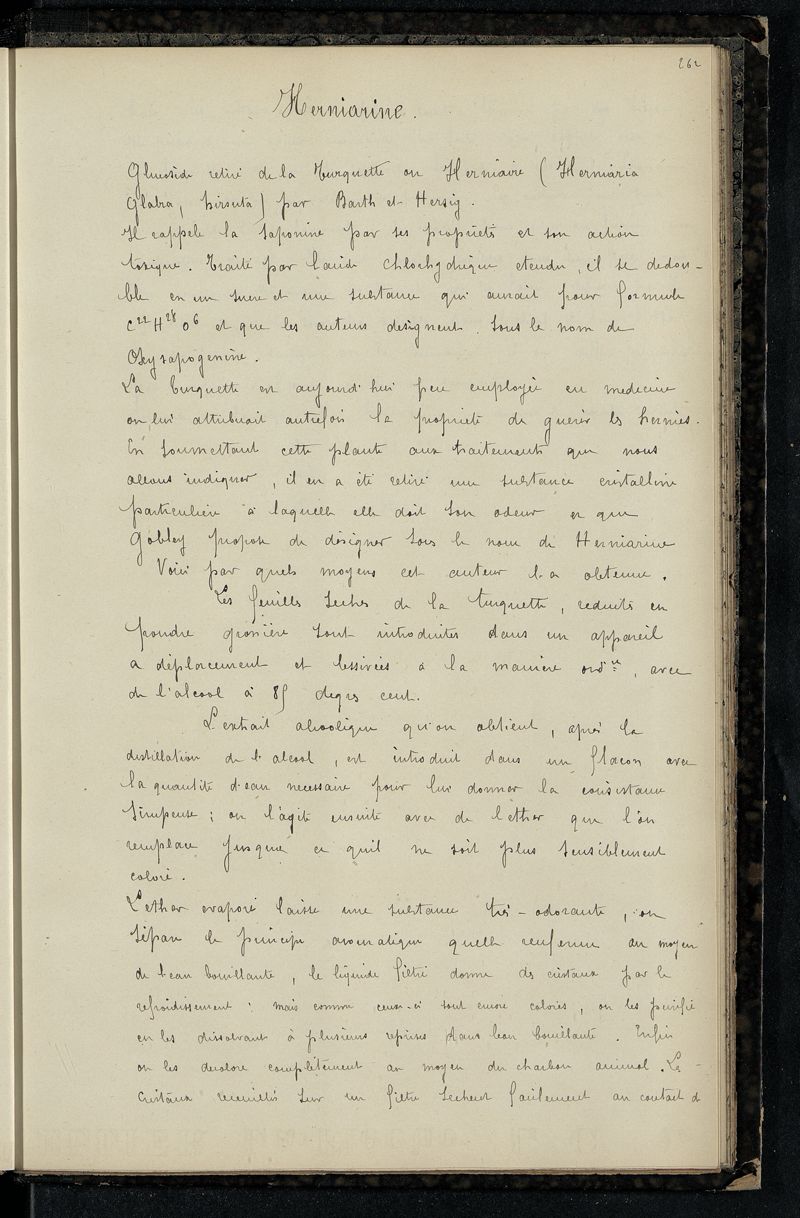 262
Herniarine.
Glucoside retiré de la Turquette ou Herniaire (Herniaria
Glabra, hirsuta) par Barth et Hersig.
Il rappele la saponine par ses propriétés et son action
toxique. Traité par l'acide chlorhydrique etendu, il se dedou-
ble en un sucre et une substance qui aurait pour formule
C22H28O6 et que les auteurs designent sous le nom de
Oxysapogenine.
La turquette est aujourd'hui peu employée en medecine
on lui attribuait autrefois la propriété de guérir les hernies.
En soumettant cette plante aux traitements que nous
allons indiquer, il en a été retiré une substance cristalline
particulière à laquelle elle doit son odeur et que
Gobley propose de désigner sous le nom de Herniarine
Voici par quels moyens cet auteur l'a obtenue.
Les feuilles seches de la turquette, reduites en
poudre grossière sont introduites dans un appareil
a déplacement et lessivées à la manière ordre, avec
de l'alcool à 85 degrés cent.
L'extrait alcoolique qu'on obtient, après la
distillation de l'alcool, est introduit dans un flacon avec
la quantité d'eau necessaire pour lui donner la consistance
sirupeuse; on l'agite ensuite avec de l'ether que l'on
remplace jusque ce qu'il ne soit plus sensiblement
coloré.
L'ether evaporé laisse une substance très-odorante, on
sépare le principe aromatique quelle renferme au moyen
de l'eau bouillante, le liquide filtré donne des cristaux par le
refroidissement; mais comme ceux-ci sont encore colorés, on les purifie
en les dissolvant à plusieurs reprises dans l'eau bouillante. Enfin
on les decolore complètement au moyen du charbon animal. Les
cristaux recueillis sur un filtre sechent facilement au contact d